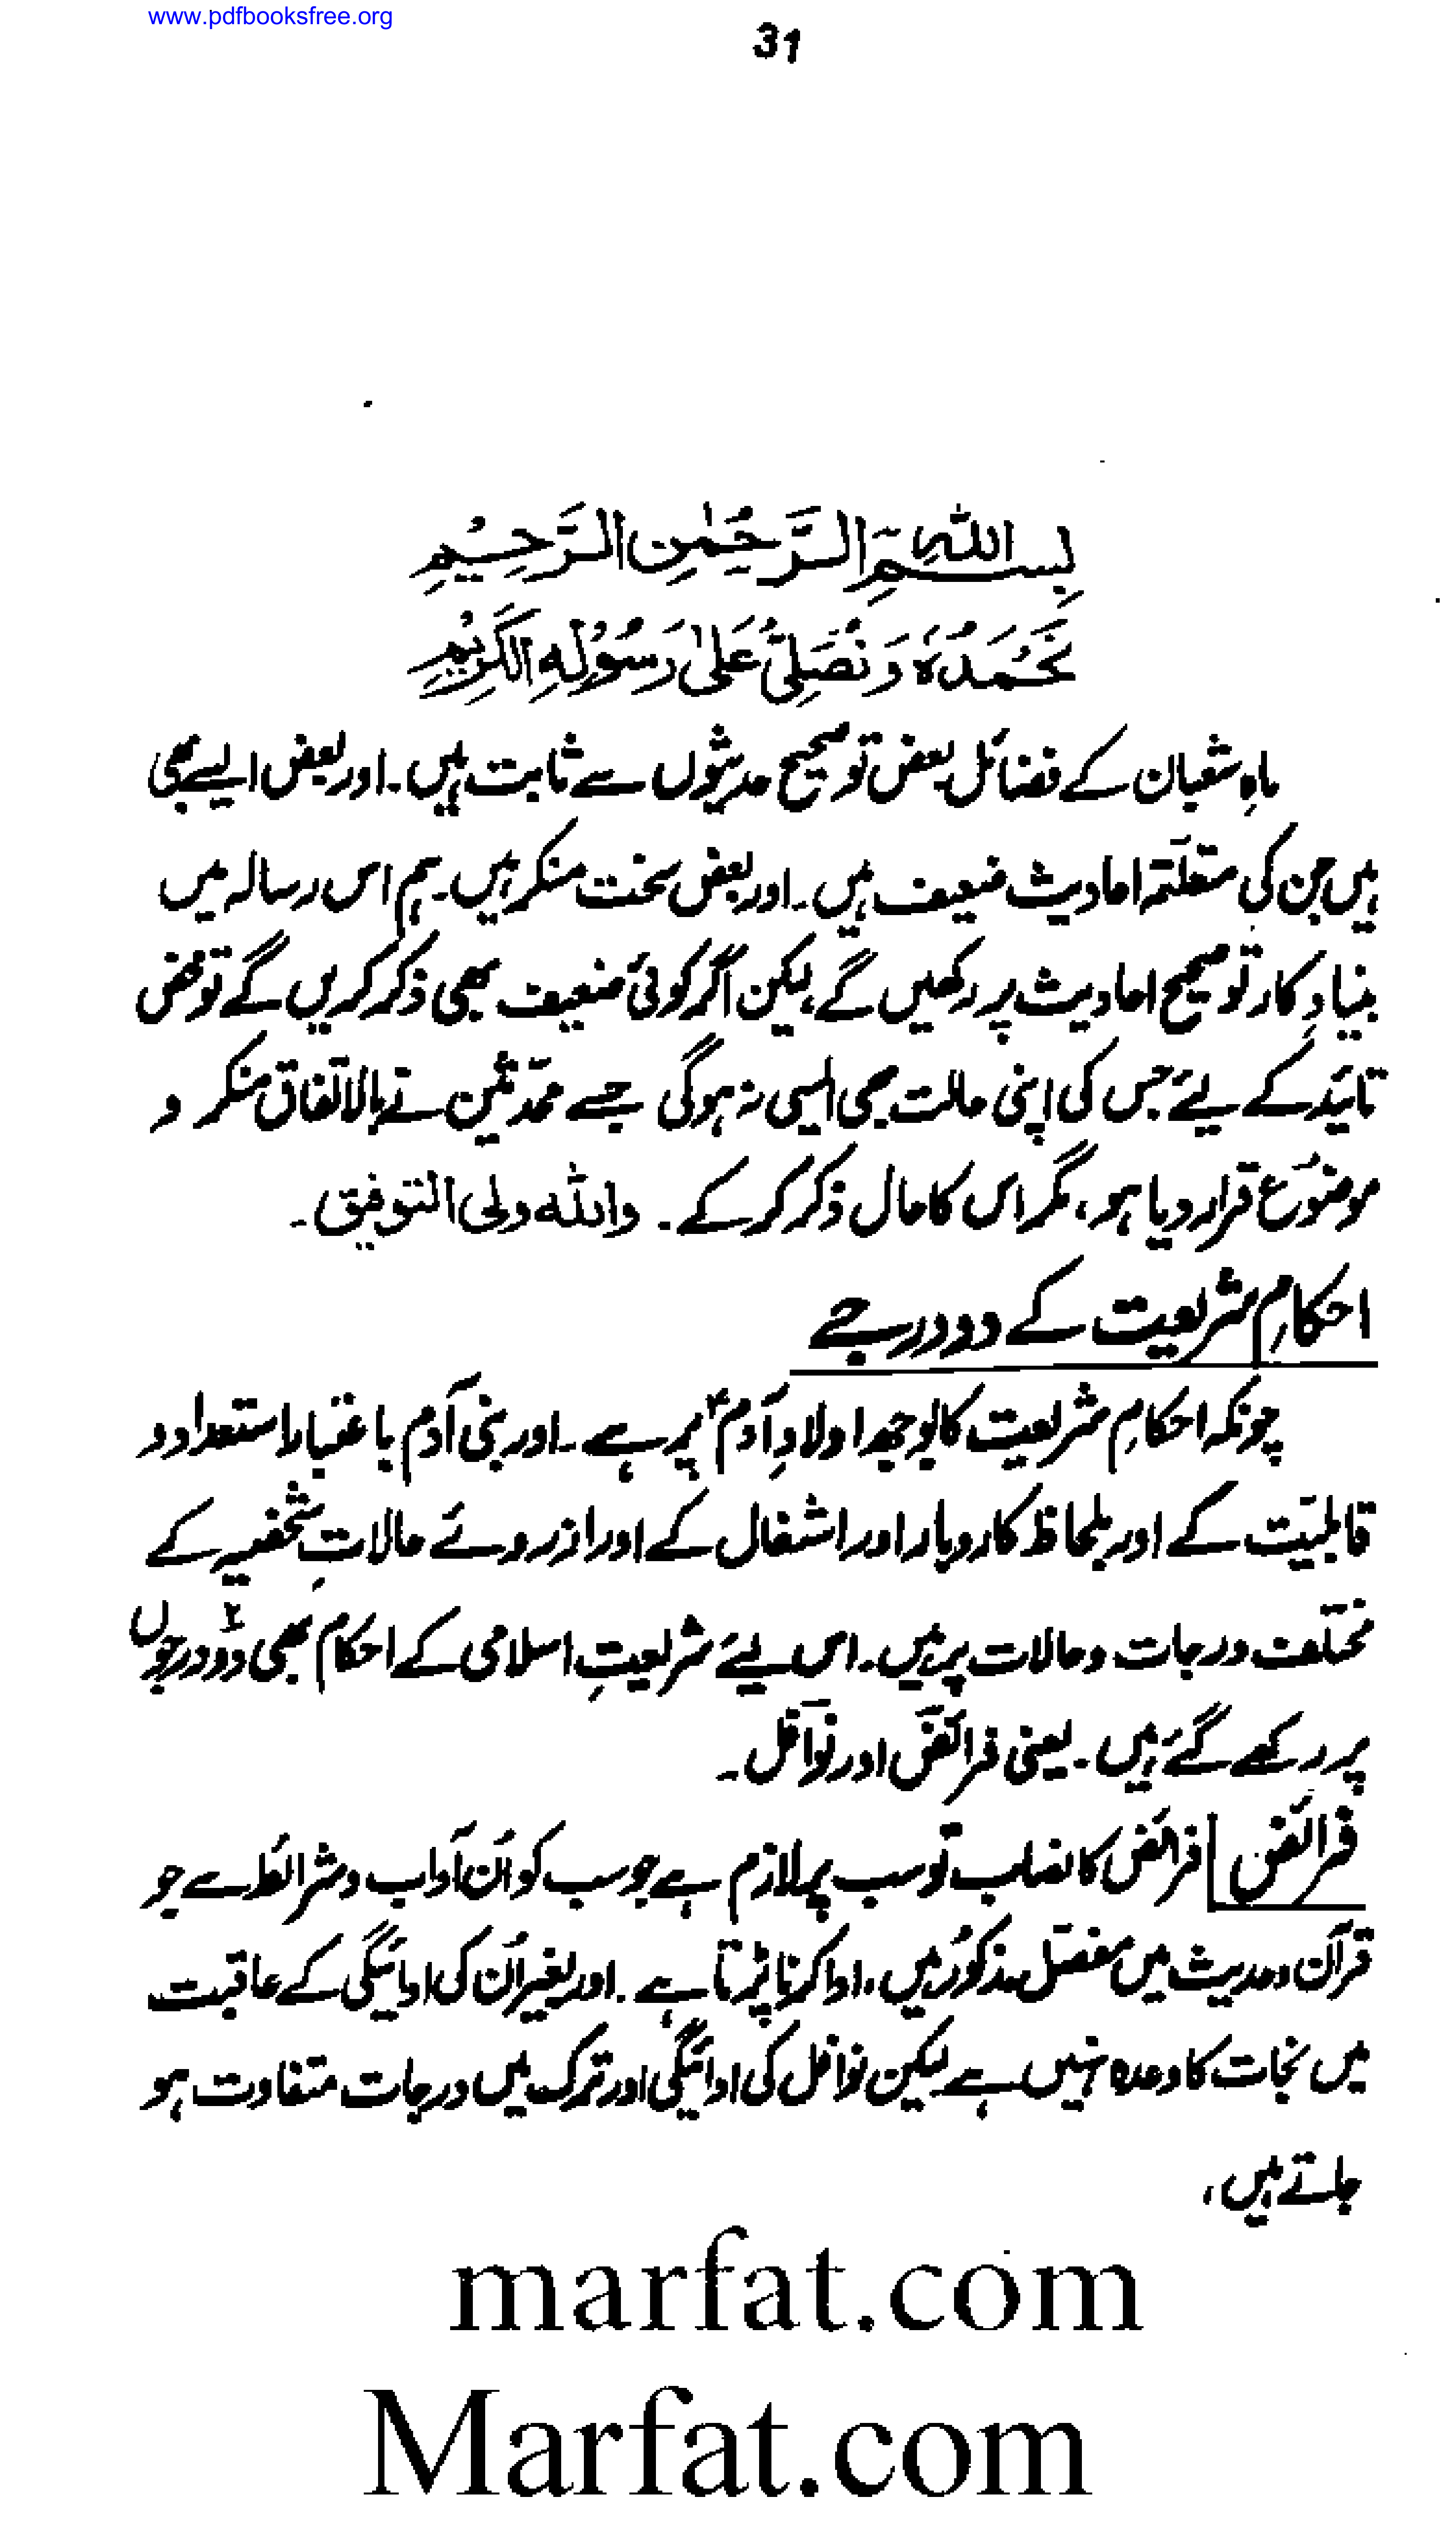 www.pdfbooksfree.org
31
بِسْمِ اللهِ الرَّحْمٰنِ الرَّحِيْمِ
نَحْمَدُهٗ وَنُصَلِّیْ عَلٰی رَسُوْلِهِ الْكَرِيْمِ
ماہِ شعبان کے فضائل بعض تو صحیح حدیثوں سے ثابت ہیں۔ اور بعض ایسے بھی
ہیں جن کی متعلقہ احادیث ضعیف ہیں۔ اور بعض سخت منکر ہیں۔ ہم اس رسالہ میں
بنیادِ کار تو صحیح احادیث پر رکھیں گے، لیکن اگر کوئی ضعیف بھی ذکر کریں گے تو محض
تائید کے لیے جس کی اپنی حالت بھی ایسی نہ ہوگی جسے محدّثین نے بالاتفاق منکر و
موضوع قرار دیا ہو، مگر اس کا حال ذکر کر کے۔ واللہ ولی التوفیق۔
احکامِ شریعت کے دو درجے
چونکہ احکامِ شریعت کا بوجھ اولادِ آدمؑ پر ہے۔ اور بنی آدم باعتبار استعداد و
قابلیّت کے اور بلحاظ کاروبار اور اشغال کے اور از روئے حالاتِ شخصیہ کے
مختلف درجات و حالات پر ہیں۔ اس لیے شریعتِ اسلامی کے احکام بھی دو۲ درجوں
پر رکھے گئے ہیں۔ یعنی فرائض اور نوافل۔
فرائض فرائض کا نصاب تو سب پر لازم ہے جو سب کو اُن آداب و شرائط سے جو
قرآن و حدیث میں مفصّل مذکور ہیں، ادا کرنا پڑتا ہے۔ اور بغیر اُن کی ادائیگی کے عاقبت
میں نجات کا وعدہ نہیں ہے لیکن نوافل کی ادائیگی اور ترک میں درجات متفاوت ہو
جاتے ہیں،
marfat.com
Marfat.com